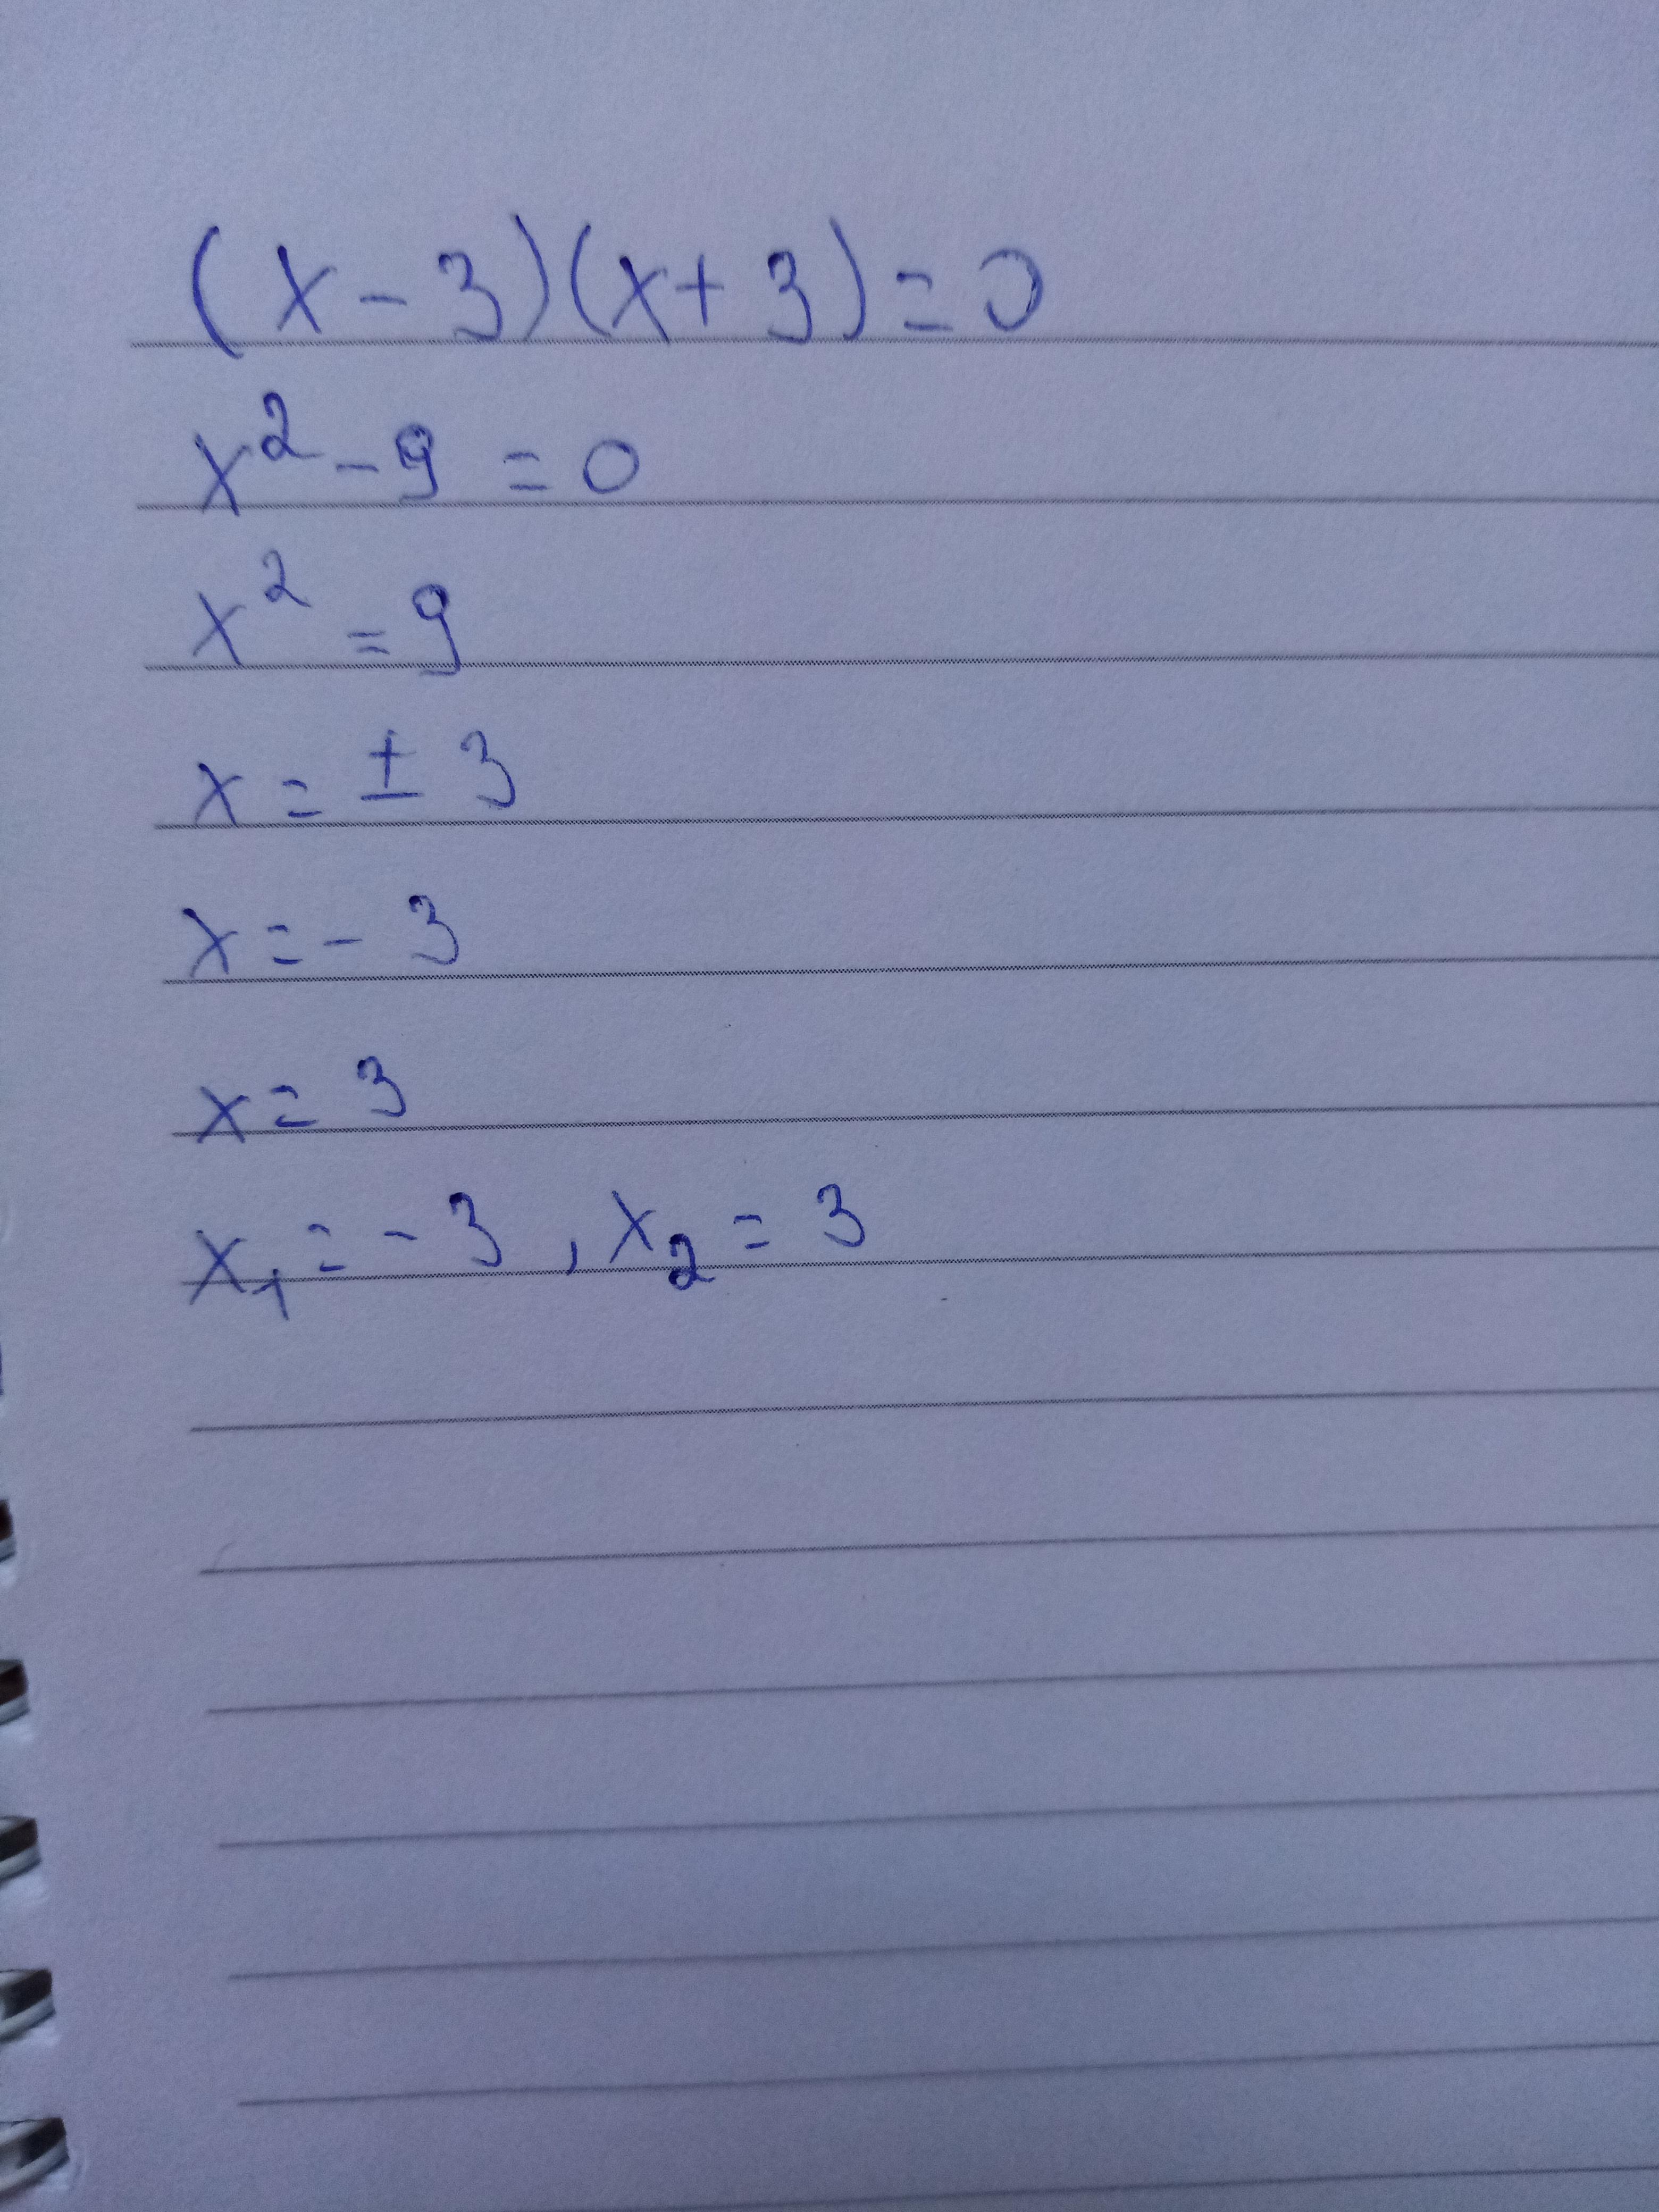 (x-3)(x+3)=0
x²-9=0
x²=9
x=±3
x=-3
x=3
x₁=-3, x₂=3